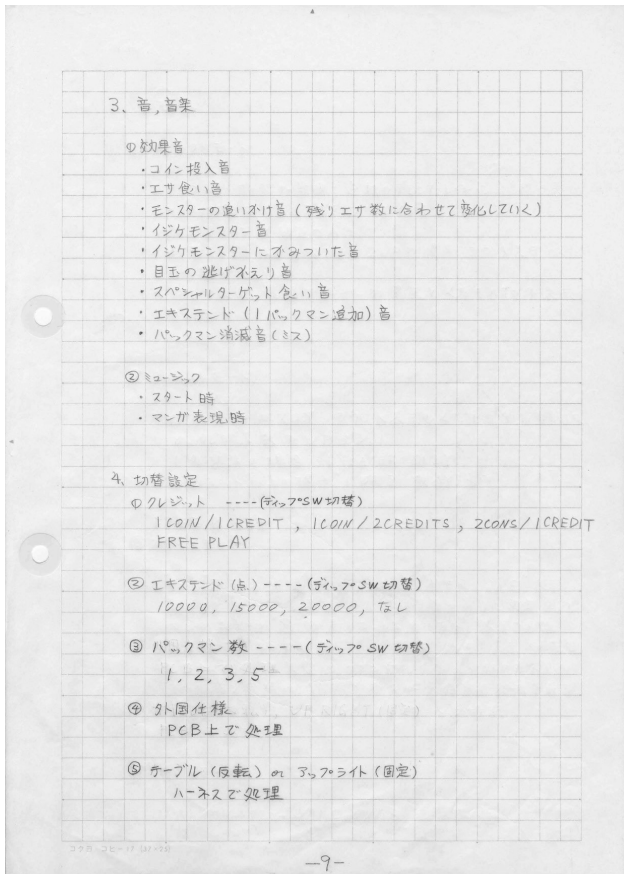 3、音,音楽
①効果音
・コイン投入音
・エサ食い音
・モンスターの追いかけ音(残りエサ数に合わせて変化していく)
・イジケモンスター音
・イジケモンスターにかみついた音
・目玉の逃げかえり音
・スペシャルターゲット食い音
・エキステンド(1パックマン追加)音
・パックマン消滅音(ミス)
②ミュージック
・スタート時
・マンガ表現時
4、切替設定
①クレジット ----(ディップSW切替)
1COIN/1CREDIT, 1COIN/2CREDITS, 2CONS/1CREDIT
FREE PLAY
②エキステンド(点)----(ディップSW切替)
10000, 15000, 20000, なし
③パックマン数----(ディップSW切替)
1, 2, 3, 5
④外国仕様
PCB上で処理
⑤テーブル(反転)or アップライト(固定)
ハーネスで処理
—9—